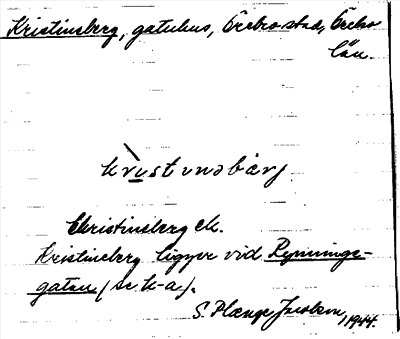 Kristinsberg, gatuhus, Örebro stad, Örebro
län.
krıstınəbärj
Christinsberg ek.
Kristineberg ligger vid Rynninge-
gatan (se k-a).
S. Plænge Jacobson, 1944.